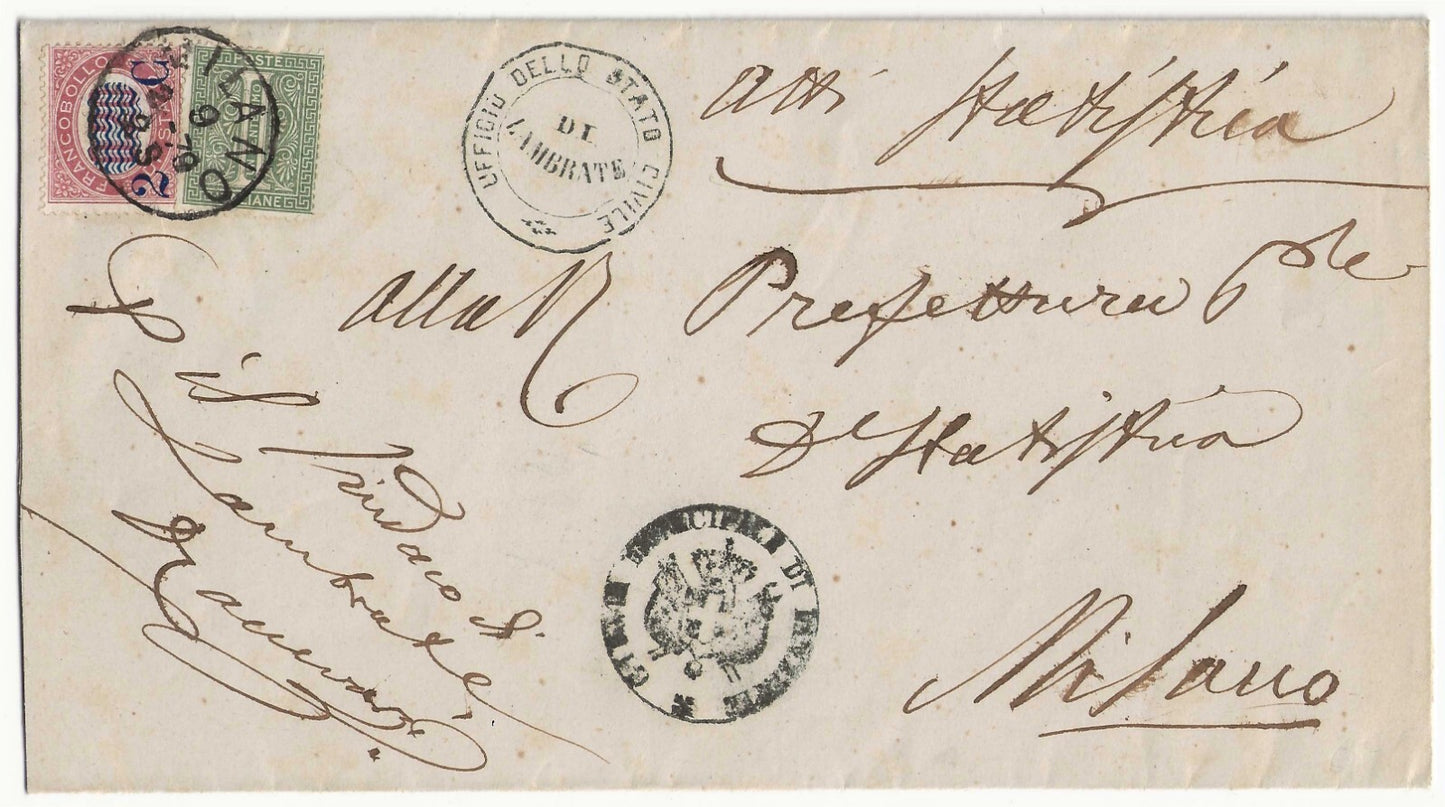 FRANCOBOLLO
STATO
2 C
POSTE
ITALIANE
MILANO
9
79
UFFICIO DELLO STATO CIVILE
DI
LAMBRATE
atti Statistica
alla R Prefettura
Statistica
Milano
il Sindaco di
Lambrate
MUNICIPALE DI